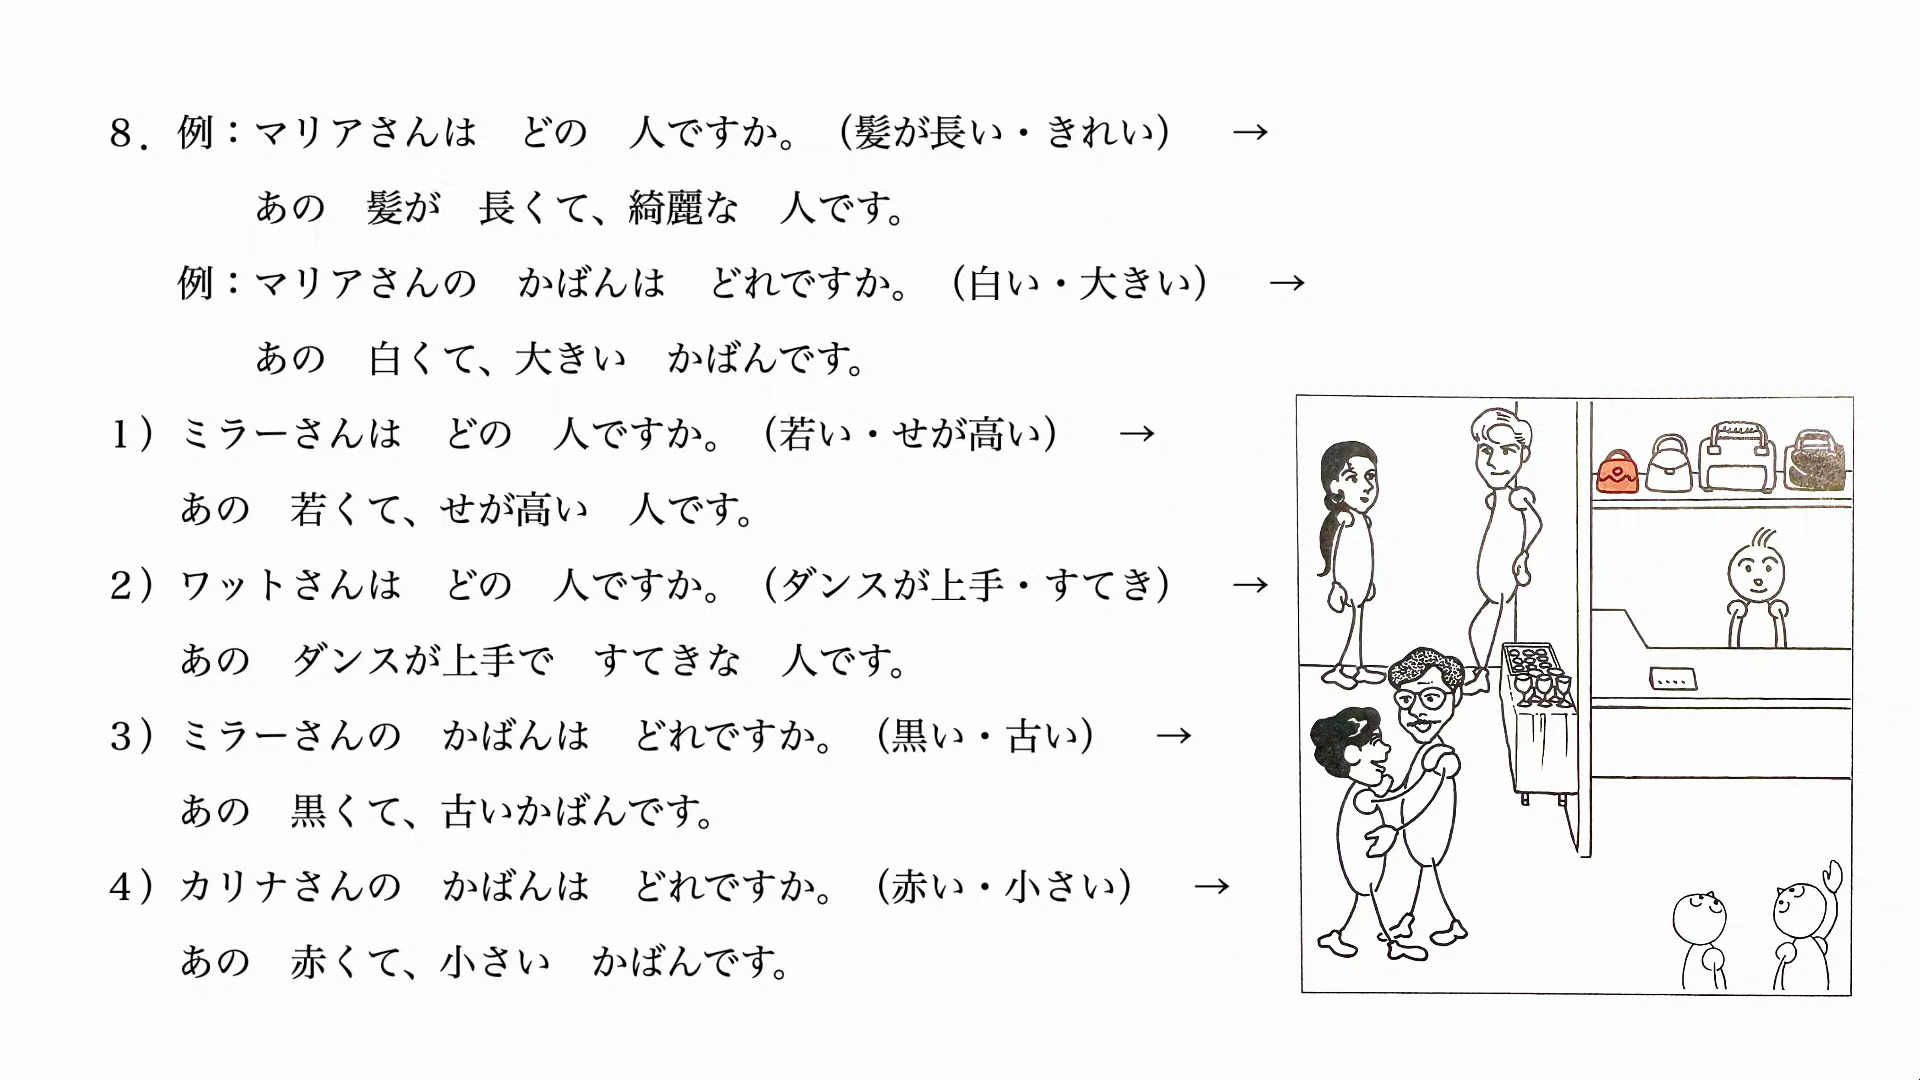 ８．例：マリアさんは　どの　人ですか。（髪が長い・きれい）　→
あの　髪が　長くて、綺麗な　人です。
例：マリアさんの　かばんは　どれですか。（白い・大きい）　→
あの　白くて、大きい　かばんです。
１）ミラーさんは　どの　人ですか。（若い・せが高い）　→
あの　若くて、せが高い　人です。
２）ワットさんは　どの　人ですか。（ダンスが上手・すてき）　→
あの　ダンスが上手で　すてきな　人です。
３）ミラーさんの　かばんは　どれですか。（黒い・古い）　→
あの　黒くて、古いかばんです。
４）カリナさんの　かばんは　どれですか。（赤い・小さい）　→
あの　赤くて、小さい　かばんです。